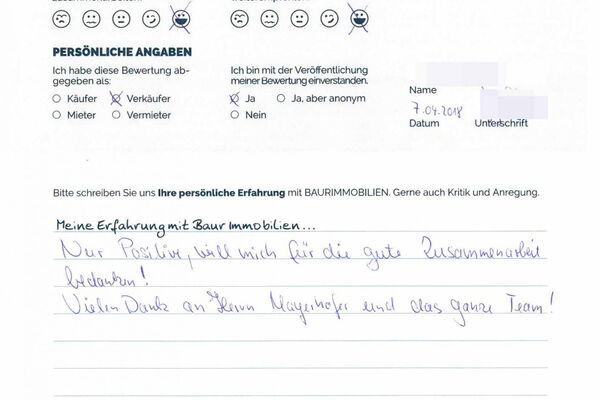 PERSÖNLICHE ANGABEN
Ich habe diese Bewertung ab-
gegeben als:
Käufer Verkäufer
Mieter Vermieter
Ich bin mit der Veröffentlichung
meiner Bewertung einverstanden.
Ja Ja, aber anonym
Nein
Name
7.04.2018
Datum Unterschrift
Bitte schreiben Sie uns Ihre persönliche Erfahrung mit BAURIMMOBILIEN. Gerne auch Kritik und Anregung.
Meine Erfahrung mit Baur Immobilien...
Nur Positive, will mich für die gute Zusammenarbeit
bedanken!
Vielen Dank an Herrn Mayerhofer und das ganze Team!